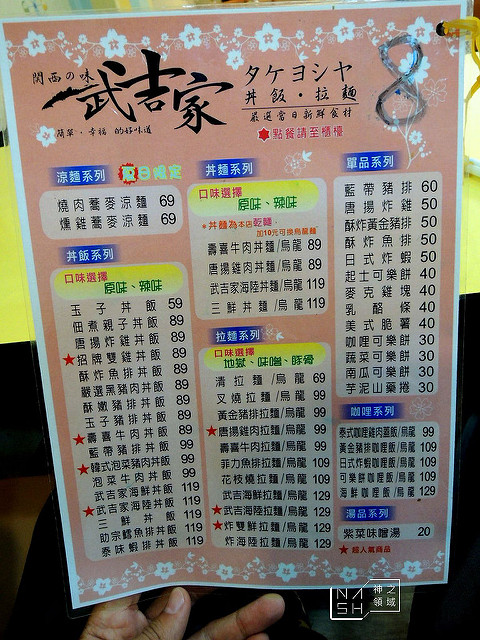 関西の味
武吉家
簡單·幸福 的好味道
タケヨシヤ
丼飯·拉麵
嚴選當日新鮮食材
點餐請至櫃檯
8
涼麵系列
夏日限定
燒肉蕎麥涼麵 69
燻雞蕎麥涼麵 69
丼飯系列
口味選擇
原味、辣味
玉子丼飯 59
佃煮親子丼飯 89
唐揚炸雞丼飯 89
★招牌雙雞丼飯 89
酥炸魚排丼飯 89
嚴選黑豬肉丼飯 89
酥嫩豬排丼飯 89
玉子豬排丼飯 89
★壽喜牛肉丼飯 89
藍帶豬排丼飯 99
★韓式泡菜豬肉丼飯 99
泡菜牛肉丼飯 99
武吉家海鮮丼飯 119
★武吉家海陸丼飯 119
三鮮丼飯 119
助宗鱈魚排丼飯 119
泰味蝦排丼飯 119
丼麵系列
口味選擇
原味、辣味
*丼麵為本店乾麵,
加10元可換烏龍麵
壽喜牛肉丼麵/烏龍 89
唐揚雞肉丼麵/烏龍 89
武吉家海陸丼麵/烏龍 119
三鮮丼麵/烏龍 119
拉麵系列
口味選擇
地獄、味噌、豚骨
清拉麵/烏龍 69
叉燒拉麵/烏龍 99
黃金豬排拉麵/烏龍 99
★唐揚雞肉拉麵/烏龍 99
壽喜牛肉拉麵/烏龍 99
菲力魚排拉麵/烏龍 109
花枝燒拉麵/烏龍 109
武吉海鮮拉麵/烏龍 129
★武吉海陸拉麵/烏龍 129
★炸雙鮮拉麵/烏龍 129
炸海陸拉麵/烏龍 129
單品系列
藍帶豬排 60
唐揚炸雞 50
酥炸黃金豬排 50
酥炸魚排 50
日式炸蝦 50
起士可樂餅 40
麥克雞塊 40
乳酪條 40
美式脆薯 40
咖哩可樂餅 30
蔬菜可樂餅 30
南瓜可樂餅 30
芋泥山藥捲 30
咖哩系列
泰式咖哩雞肉蓋飯/烏龍 99
黃金豬排咖哩飯/烏龍 109
日式炸蝦咖哩飯/烏龍 109
可樂餅咖哩飯/烏龍 109
海鮮咖哩飯/烏龍 129
湯品系列
紫菜味噌湯 20
★超人氣商品
NASH
神之領域